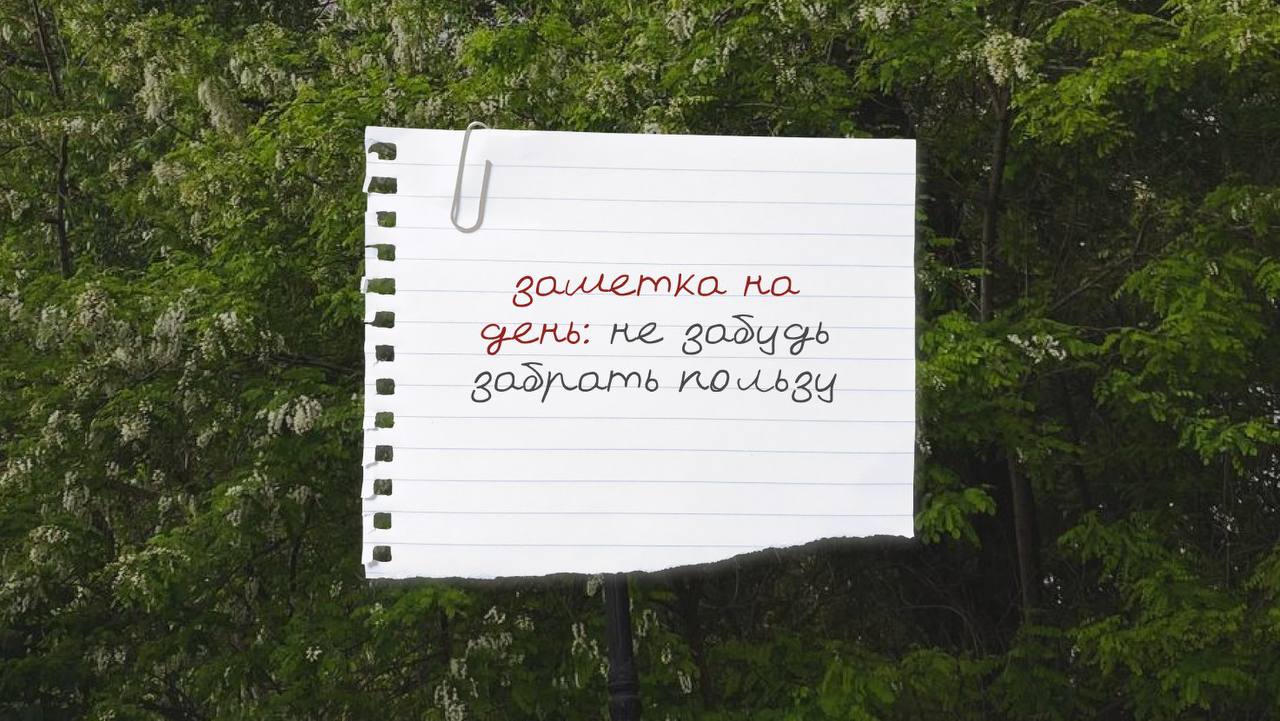 заметка на
день: не забудь
забрать пользу